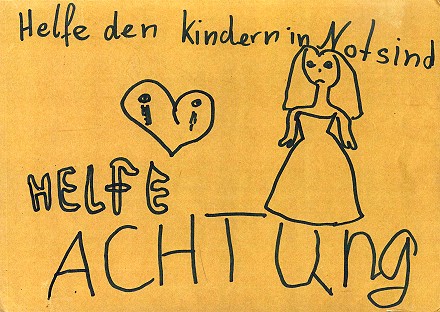 Helfe den Kindern in Not sind
HELFE
ACHTUng